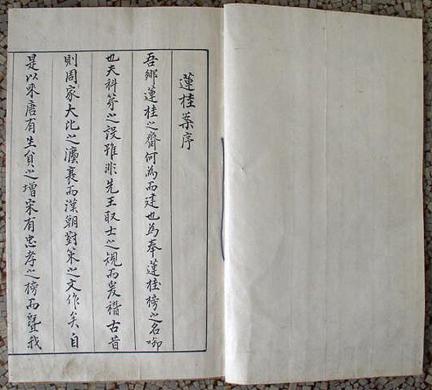 蓮桂葉序
吾鄉蓮桂之齋何為而建也為奉蓮桂榜之名
也夫科第之設雖非先王取士之規而爰稽古昔
則周家大比之濫觴而漢朝對策之文作矣自
是以來唐有生貟之增宋有忠孝之榜而我